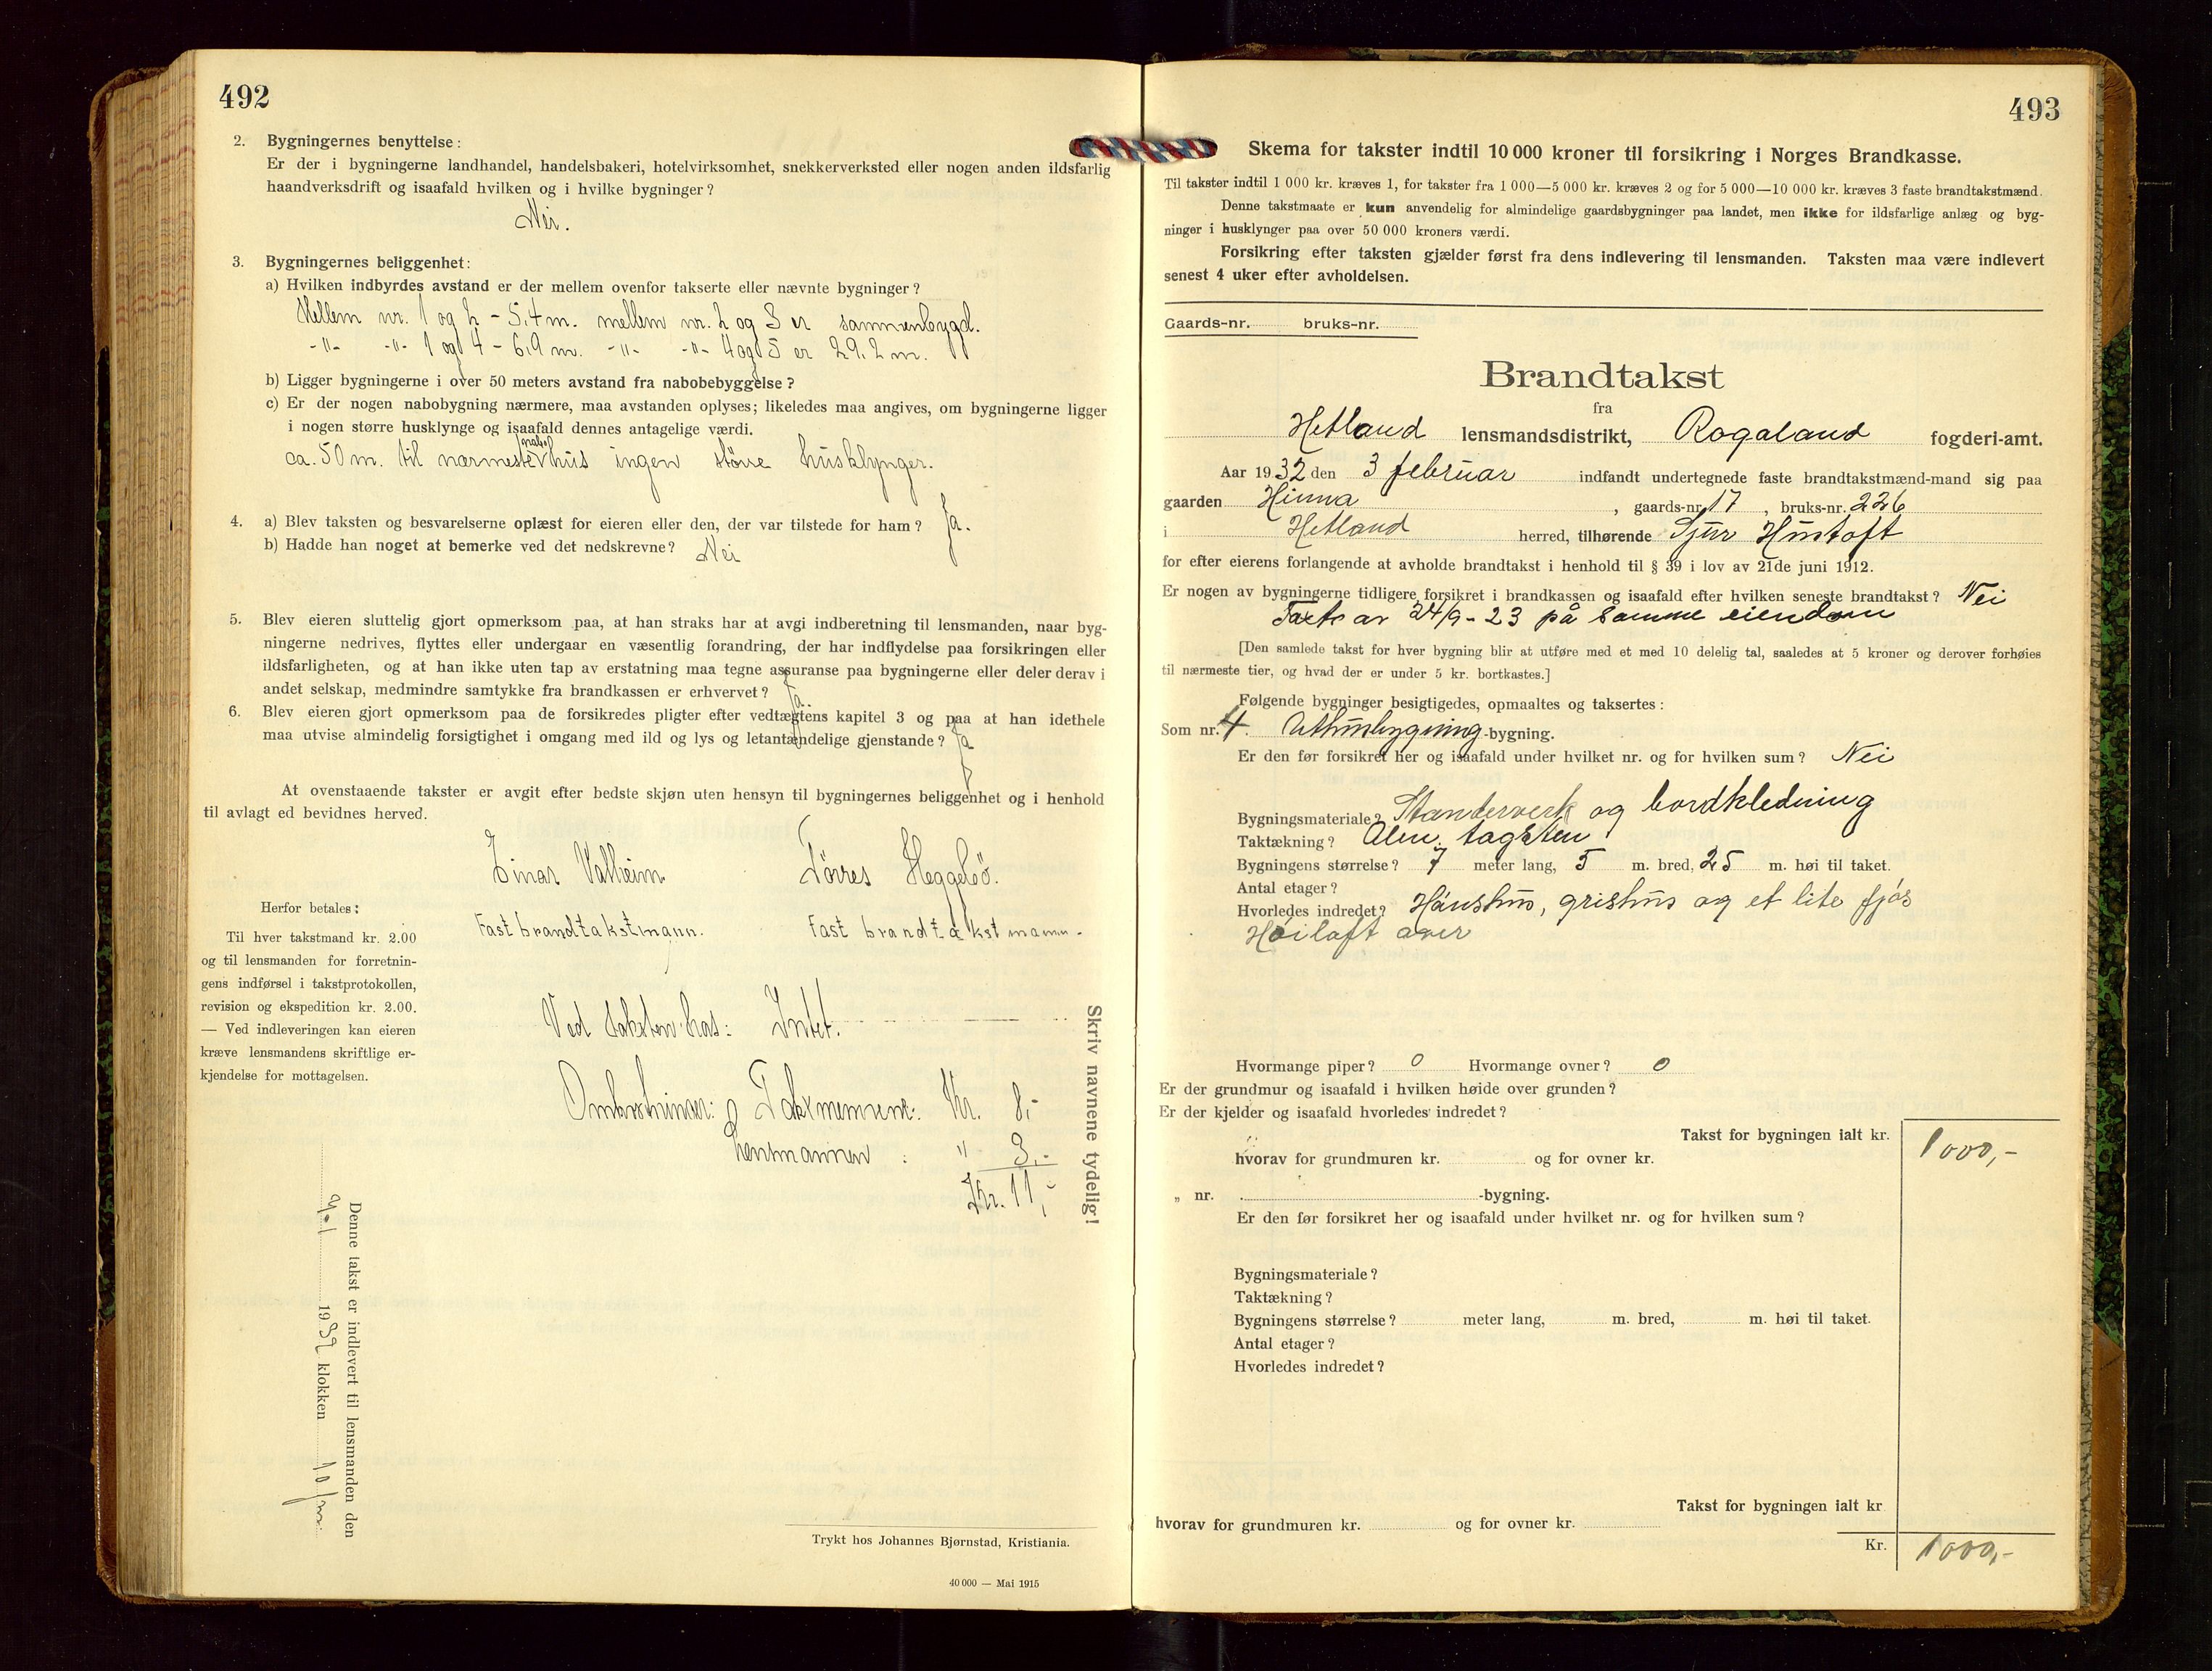 492
2. Bygningernes benyttelse:
Er der i bygningerne landhandel, handelsbakeri, hotelvirksomhet, snekkerverksted eller nogen anden ildsfarlig
haandverksdrift og isaafald hvilken og i hvilke bygninger?
Nei.
3. Bygningernes beliggenhet:
a) Hvilken indbyrdes avstand er der mellem ovenfor takserte eller nævnte bygninger?
Mellem nr. 1 og 2 - 5,4 m. mellem nr. 2 og 3 er sammenbygd.
-"- -"- 1 og 4 - 6,9 m. -"- -"- 4 og 5 er 29,2 m.
b) Ligger bygningerne i over 50 meters avstand fra nabobebyggelse?
c) Er der nogen nabobygning nærmere, maa avstanden oplyses; likeledes maa angives, om bygningerne ligger
i nogen større husklynge og isaafald dennes antagelige værdi.
ca. 50 m. til nærmeste nabohus ingen större husklynger.
4. a) Blev taksten og besvarelserne oplæst for eieren eller den, der var tilstede for ham? Ja.
b) Hadde han noget at bemerke ved det nedskrevne? Nei
5. Blev eieren sluttelig gjort opmerksom paa, at han straks har at avgi indberetning til lensmanden, naar byg-
ningerne nedrives, flyttes eller undergaar en væsentlig forandring, der har indflydelse paa forsikringen eller
ildsfarligheten, og at han ikke uten tap av erstatning maa tegne assuranse paa bygningerne eller deler derav i
andet selskap, medmindre samtykke fra brandkassen er erhvervet? Ja.
6. Blev eieren gjort opmerksom paa de forsikredes pligter efter vedtægtens kapitel 3 og paa at han idethele
maa utvise almindelig forsigtighet i omgang med ild og lys og letantændelige gjenstande? Ja
At ovenstaaende takster er avgit efter bedste skjøn uten hensyn til bygningernes beliggenhet og i henhold
til avlagt ed bevidnes herved.
Einar Valheim Törres Heggebö.
Fast brandtakstmann. Fast brandtakstmann.
Herfor betales:
Til hver takstmand kr. 2.00
og til lensmanden for forretnin-
gens indførsel i takstprotokollen,
revision og ekspedition kr. 2.00.
— Ved indleveringen kan eieren
kræve lensmandens skriftlige er-
kjendelse for mottagelsen.
Ved taksten has: Intet.
Omkostninger: Takstmennene: Kr. 8,-
Lensmannen : " 3,-
Kr. 11,-
Skriv navnene tydelig!
Denne takst er indlevert til lensmanden den
1932 klokken 10 fm.
Trykt hos Johannes Bjørnstad, Kristiania.
40 000 — Mai 1915
493
Skema for takster indtil 10 000 kroner til forsikring i Norges Brandkasse.
Til takster indtil 1 000 kr. kræves 1, for takster fra 1 000—5 000 kr. kræves 2 og for 5 000—10 000 kr. kræves 3 faste brandtakstmænd.
Denne takstmaate er kun anvendelig for almindelige gaardsbygninger paa landet, men ikke for ildsfarlige anlæg og byg-
ninger i husklynger paa over 50 000 kroners værdi.
Forsikring efter taksten gjælder først fra dens indlevering til lensmanden. Taksten maa være indlevert
senest 4 uker efter avholdelsen.
Gaards-nr. bruks-nr.
Brandtakst
fra
Hetland lensmandsdistrikt, Rogaland fogderi-amt.
Aar 1932 den 3 februar indfandt undertegnede faste brandtakstmænd-mand sig paa
gaarden Hinna, gaards-nr. 17, bruks-nr. 226
i Hetland herred, tilhørende Sjur Hustoft
for efter eierens forlangende at avholde brandtakst i henhold til § 39 i lov av 21de juni 1912.
Er nogen av bygningerne tidligere forsikret i brandkassen og isaafald efter hvilken seneste brandtakst? Nei
Takts av 24/9-23 på samme eiendom
[Den samlede takst for hver bygning blir at utføre med et med 10 delelig tal, saaledes at 5 kroner og derover forhøies
til nærmeste tier, og hvad der er under 5 kr. bortkastes.]
Følgende bygninger besigtigedes, opmaaltes og taksertes:
Som nr. 4. Uthusbygning-bygning.
Er den før forsikret her og isaafald under hvilket nr. og for hvilken sum? Nei
Bygningsmateriale? Standerverk og bordkledning
Taktækning? Alm. tagsten
Bygningens størrelse? 7 meter lang, 5 m. bred, 25 m. høi til taket.
Antal etager?
Hvorledes indredet? Hönshus, grishus og et lite fjös
Höiloft over
Hvormange piper? 0 Hvormange ovner? 0
Er der grundmur og isaafald i hvilken høide over grunden?
Er der kjelder og isaafald hvorledes indredet?
Takst for bygningen ialt kr. 1000,-
hvorav for grundmuren kr. og for ovner kr.
„ nr. -bygning.
Er den før forsikret her og isaafald under hvilket nr. og for hvilken sum?
Bygningsmateriale?
Taktækning?
Bygningens størrelse? meter lang, m. bred, m. høi til taket.
Antal etager?
Hvorledes indredet?
Takst for bygningen ialt kr
hvorav for grundmuren kr. og for ovner kr.
Kr. 1000,-